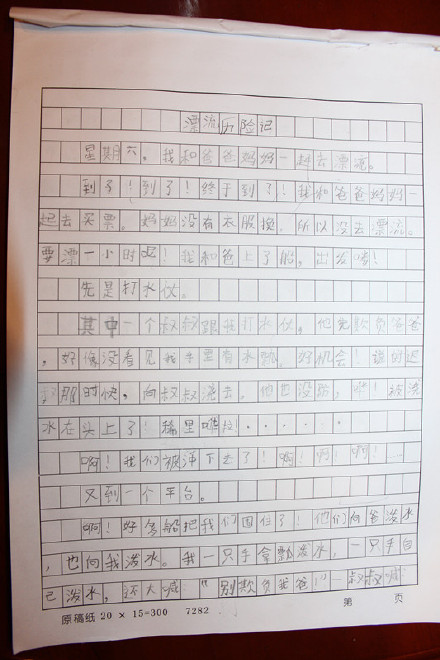 漂流历险记
星期六。我和爸爸妈妈一起去漂流。
到了!到了!终于到了!我和爸爸妈妈一
起去买票。妈妈没有衣服换。所以没去漂流。
要漂一小时呢!我和爸上了船,出发喽!
先是打水仗。
其中一个叔叔跟我打水仗,他光欺负爸爸
,好像没看见我手里有水瓢。好机会!说时迟
那时快,向叔叔浇去。他也没躲,被浇
水在头上了!稀里哗拉!······
啊!我们被冲下去了!啊!啊!啊!—
又到一个平台。
啊!好多船把我们围住了!他们向爸泼水
,也向我泼水。我一只手拿瓢泼水,一只手自
己泼水,还大喊:“别欺负我爸!”叔叔喊
原稿纸 20 × 15=300 7282 第 页